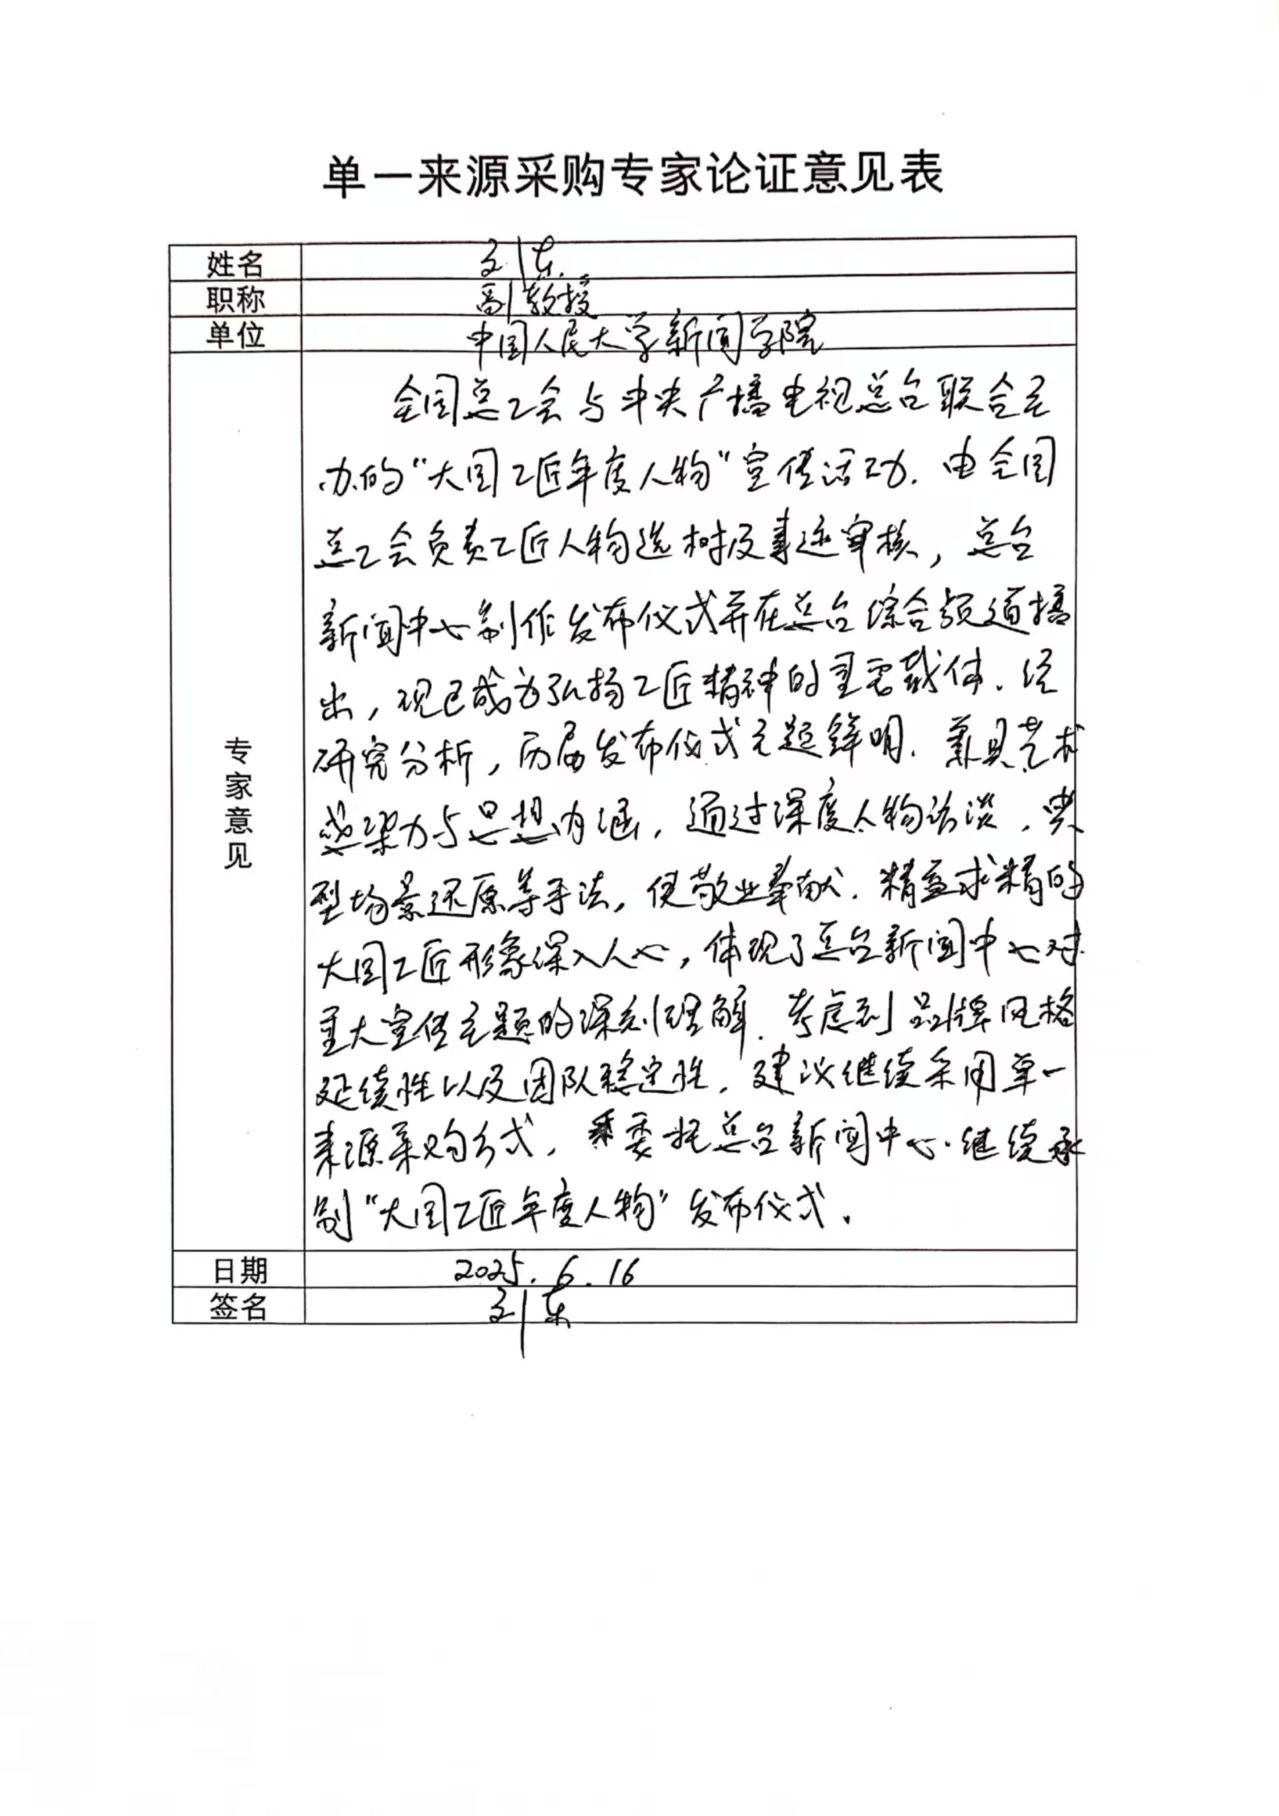 单一来源采购专家论证意见表
姓名 刘东
职称 副教授
单位 中国人民大学新闻学院
专家意见
全国总工会与中央广播电视总台联合主
办的“大国工匠年度人物”宣传活动.由全国
总工会负责工匠人物选树及事迹审核，总台
新闻中心制作发布仪式并在总台综合频道播
出，现已成为弘扬工匠精神的重要载体.经
研究分析，历届发布仪式主题鲜明.兼具艺术
感染力与思想内涵，通过深度人物访谈.典
型场景还原等手法，使敬业奉献.精益求精的
大国工匠形象深入人心，体现了总台新闻中心对
重大宣传主题的深刻理解.考虑到品牌风格
延续性以及团队稳定性，建议继续采用单一
来源采购方式，委托总台新闻中心继续承
制“大国工匠年度人物”发布仪式.
日期 2025.6.16
签名 刘东